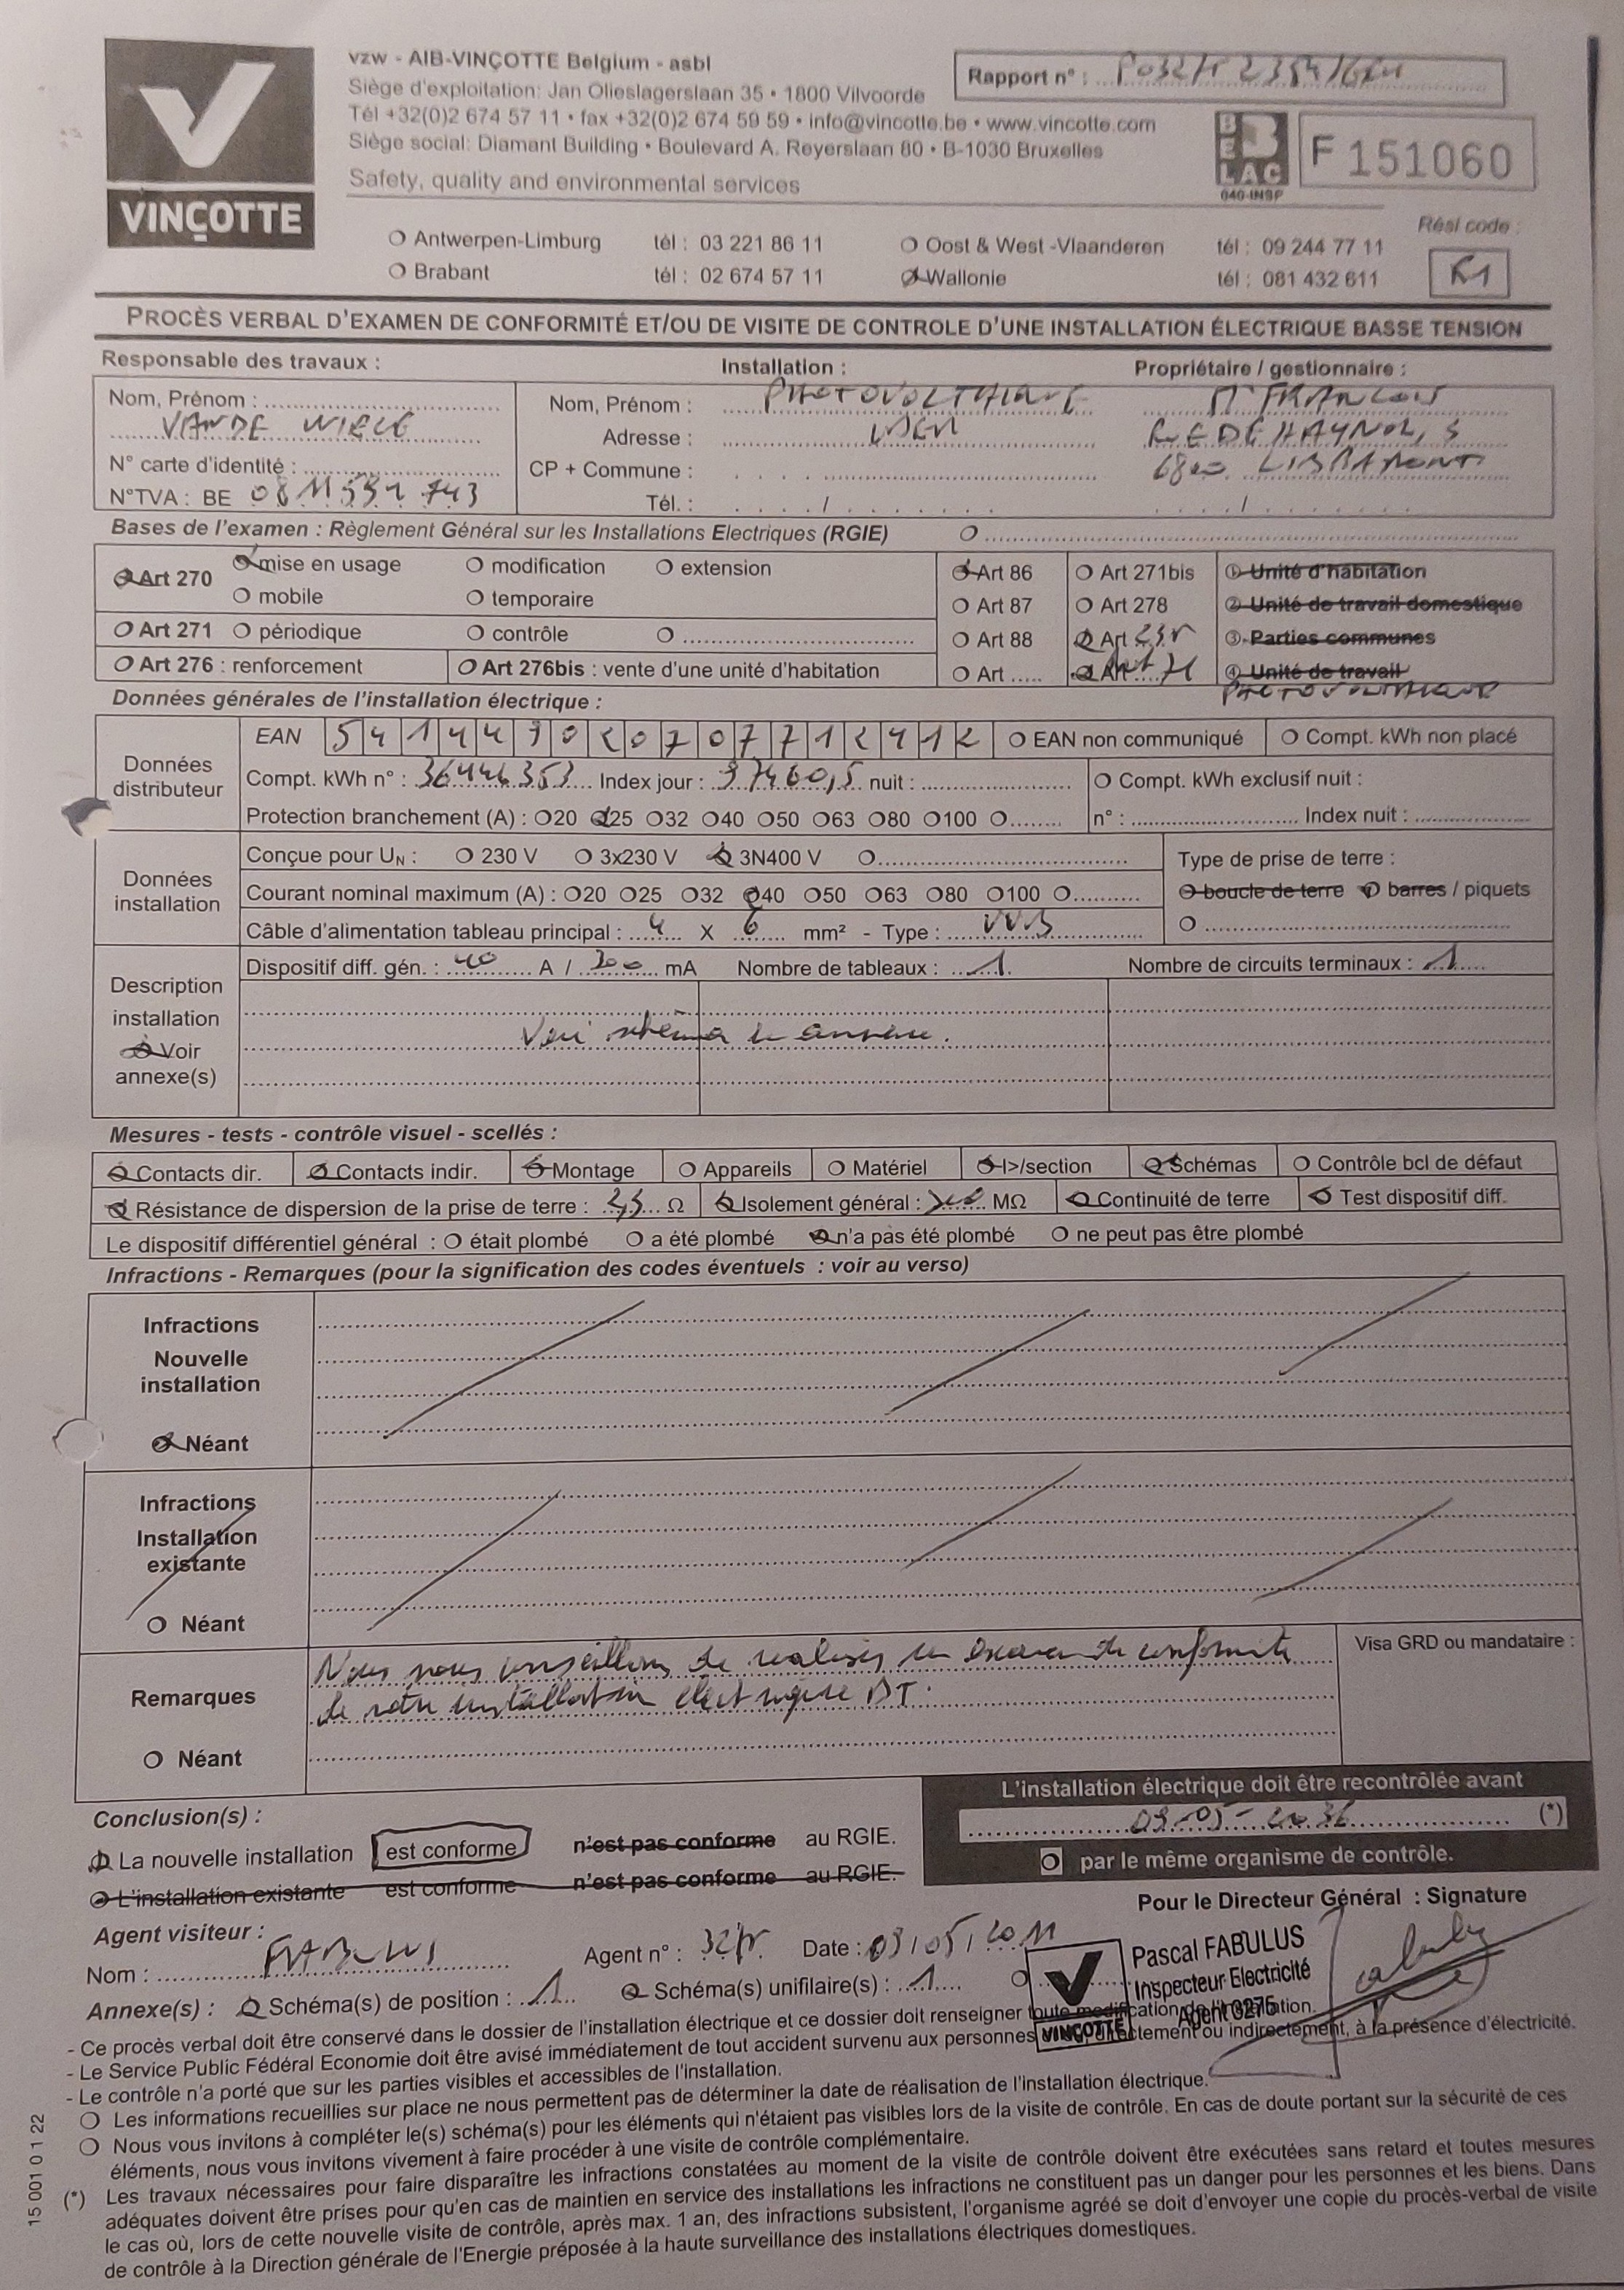 vzw - AIB-VINÇOTTE Belgium - asbl
Siège d'exploitation: Jan Olieslagerslaan 35 • 1800 Vilvoorde
Tél +32(0)2 674 57 11 • fax +32(0)2 674 59 59 • info@vincotte.be • www.vincotte.com
Siège social: Diamant Building • Boulevard A. Reyerslaan 80 • B-1030 Bruxelles
Safety, quality and environmental services
VINÇOTTE
Rapport n° :
BELAC
040-INSP
F 151060
Antwerpen-Limburg tél : 03 221 86 11 Oost & West -Vlaanderen tél : 09 244 77 11
Brabant tél : 02 674 57 11 Wallonie tél : 081 432 611
Rési code :
R1
PROCÈS VERBAL D'EXAMEN DE CONFORMITÉ ET/OU DE VISITE DE CONTROLE D'UNE INSTALLATION ÉLECTRIQUE BASSE TENSION
Responsable des travaux : Installation : Propriétaire / gestionnaire :
Nom, Prénom :
VANDE WIELE
N° carte d'identité :
N°TVA : BE
Nom, Prénom : PHOTOVOLTAIQUE Mr FRANCOIS
Adresse : IDEM
CP + Commune : 6800 LIBRAMONT
Tél. :
Bases de l'examen : Règlement Général sur les Installations Electriques (RGIE)
Art 270 mise en usage modification extension
mobile temporaire
Art 271 périodique contrôle
Art 276 : renforcement Art 276bis : vente d'une unité d'habitation
Art 86 Art 271bis 1 Unité d'habitation
Art 87 Art 278 2 Unité de travail domestique
Art 88 Art 3 Parties communes
Art ..... Art 4 Unité de travail
PHOTOVOLTAIQUE
Données générales de l'installation électrique :
Données distributeur
EAN EAN non communiqué Compt. kWh non placé
Compt. kWh n° : 36446353 Index jour : 37460,5 nuit : Compt. kWh exclusif nuit :
Protection branchement (A) : 20 25 32 40 50 63 80 100 n° : Index nuit :
Données installation
Conçue pour UN : 230 V 3x230 V 3N400 V
Courant nominal maximum (A) : 20 25 32 40 50 63 80 100
Câble d'alimentation tableau principal : 4 X 6 mm² - Type : VVB
Type de prise de terre :
boucle de terre barres / piquets
Description installation
Voir annexe(s)
Dispositif diff. gén. : 40 A / 300 mA Nombre de tableaux : 1 Nombre de circuits terminaux : 1
Voir schéma en annexe.
Mesures - tests - contrôle visuel - scellés :
Contacts dir. Contacts indir. Montage Appareils Matériel I>/section Schémas Contrôle bcl de défaut
Résistance de dispersion de la prise de terre : Ω Isolement général : MΩ Continuité de terre Test dispositif diff.
Le dispositif différentiel général : était plombé a été plombé n'a pas été plombé ne peut pas être plombé
Infractions - Remarques (pour la signification des codes éventuels : voir au verso)
Infractions
Nouvelle
installation
Néant
Infractions
Installation
existante
Néant
Remarques
Néant
Nous vous conseillons de réaliser un examen de conformité
de votre installation électrique BT.
Visa GRD ou mandataire :
L'installation électrique doit être recontrôlée avant
09-05-2036 (*)
par le même organisme de contrôle.
Conclusion(s) :
La nouvelle installation est conforme n'est pas conforme au RGIE.
L'installation existante est conforme n'est pas conforme au RGIE.
Pour le Directeur Général : Signature
Agent visiteur :
Nom : FABULUS Agent n° : Date : 09/05/2011
Annexe(s) : Schéma(s) de position : 1 Schéma(s) unifilaire(s) : 1
VINÇOTTE
Pascal FABULUS
Inspecteur Electricité
Agent 0275
- Ce procès verbal doit être conservé dans le dossier de l'installation électrique et ce dossier doit renseigner toute modification de l'installation.
- Le Service Public Fédéral Economie doit être avisé immédiatement de tout accident survenu aux personnes directement ou indirectement, à la présence d'électricité.
- Le contrôle n'a porté que sur les parties visibles et accessibles de l'installation.
Les informations recueillies sur place ne nous permettent pas de déterminer la date de réalisation de l'installation électrique.
Nous vous invitons à compléter le(s) schéma(s) pour les éléments qui n'étaient pas visibles lors de la visite de contrôle. En cas de doute portant sur la sécurité de ces
éléments, nous vous invitons vivement à faire procéder à une visite de contrôle complémentaire.
(*) Les travaux nécessaires pour faire disparaître les infractions constatées au moment de la visite de contrôle doivent être exécutées sans retard et toutes mesures
adéquates doivent être prises pour qu'en cas de maintien en service des installations les infractions ne constituent pas un danger pour les personnes et les biens. Dans
le cas où, lors de cette nouvelle visite de contrôle, après max. 1 an, des infractions subsistent, l'organisme agréé se doit d'envoyer une copie du procès-verbal de visite
de contrôle à la Direction générale de l'Energie préposée à la haute surveillance des installations électriques domestiques.
15 001 0 1 22